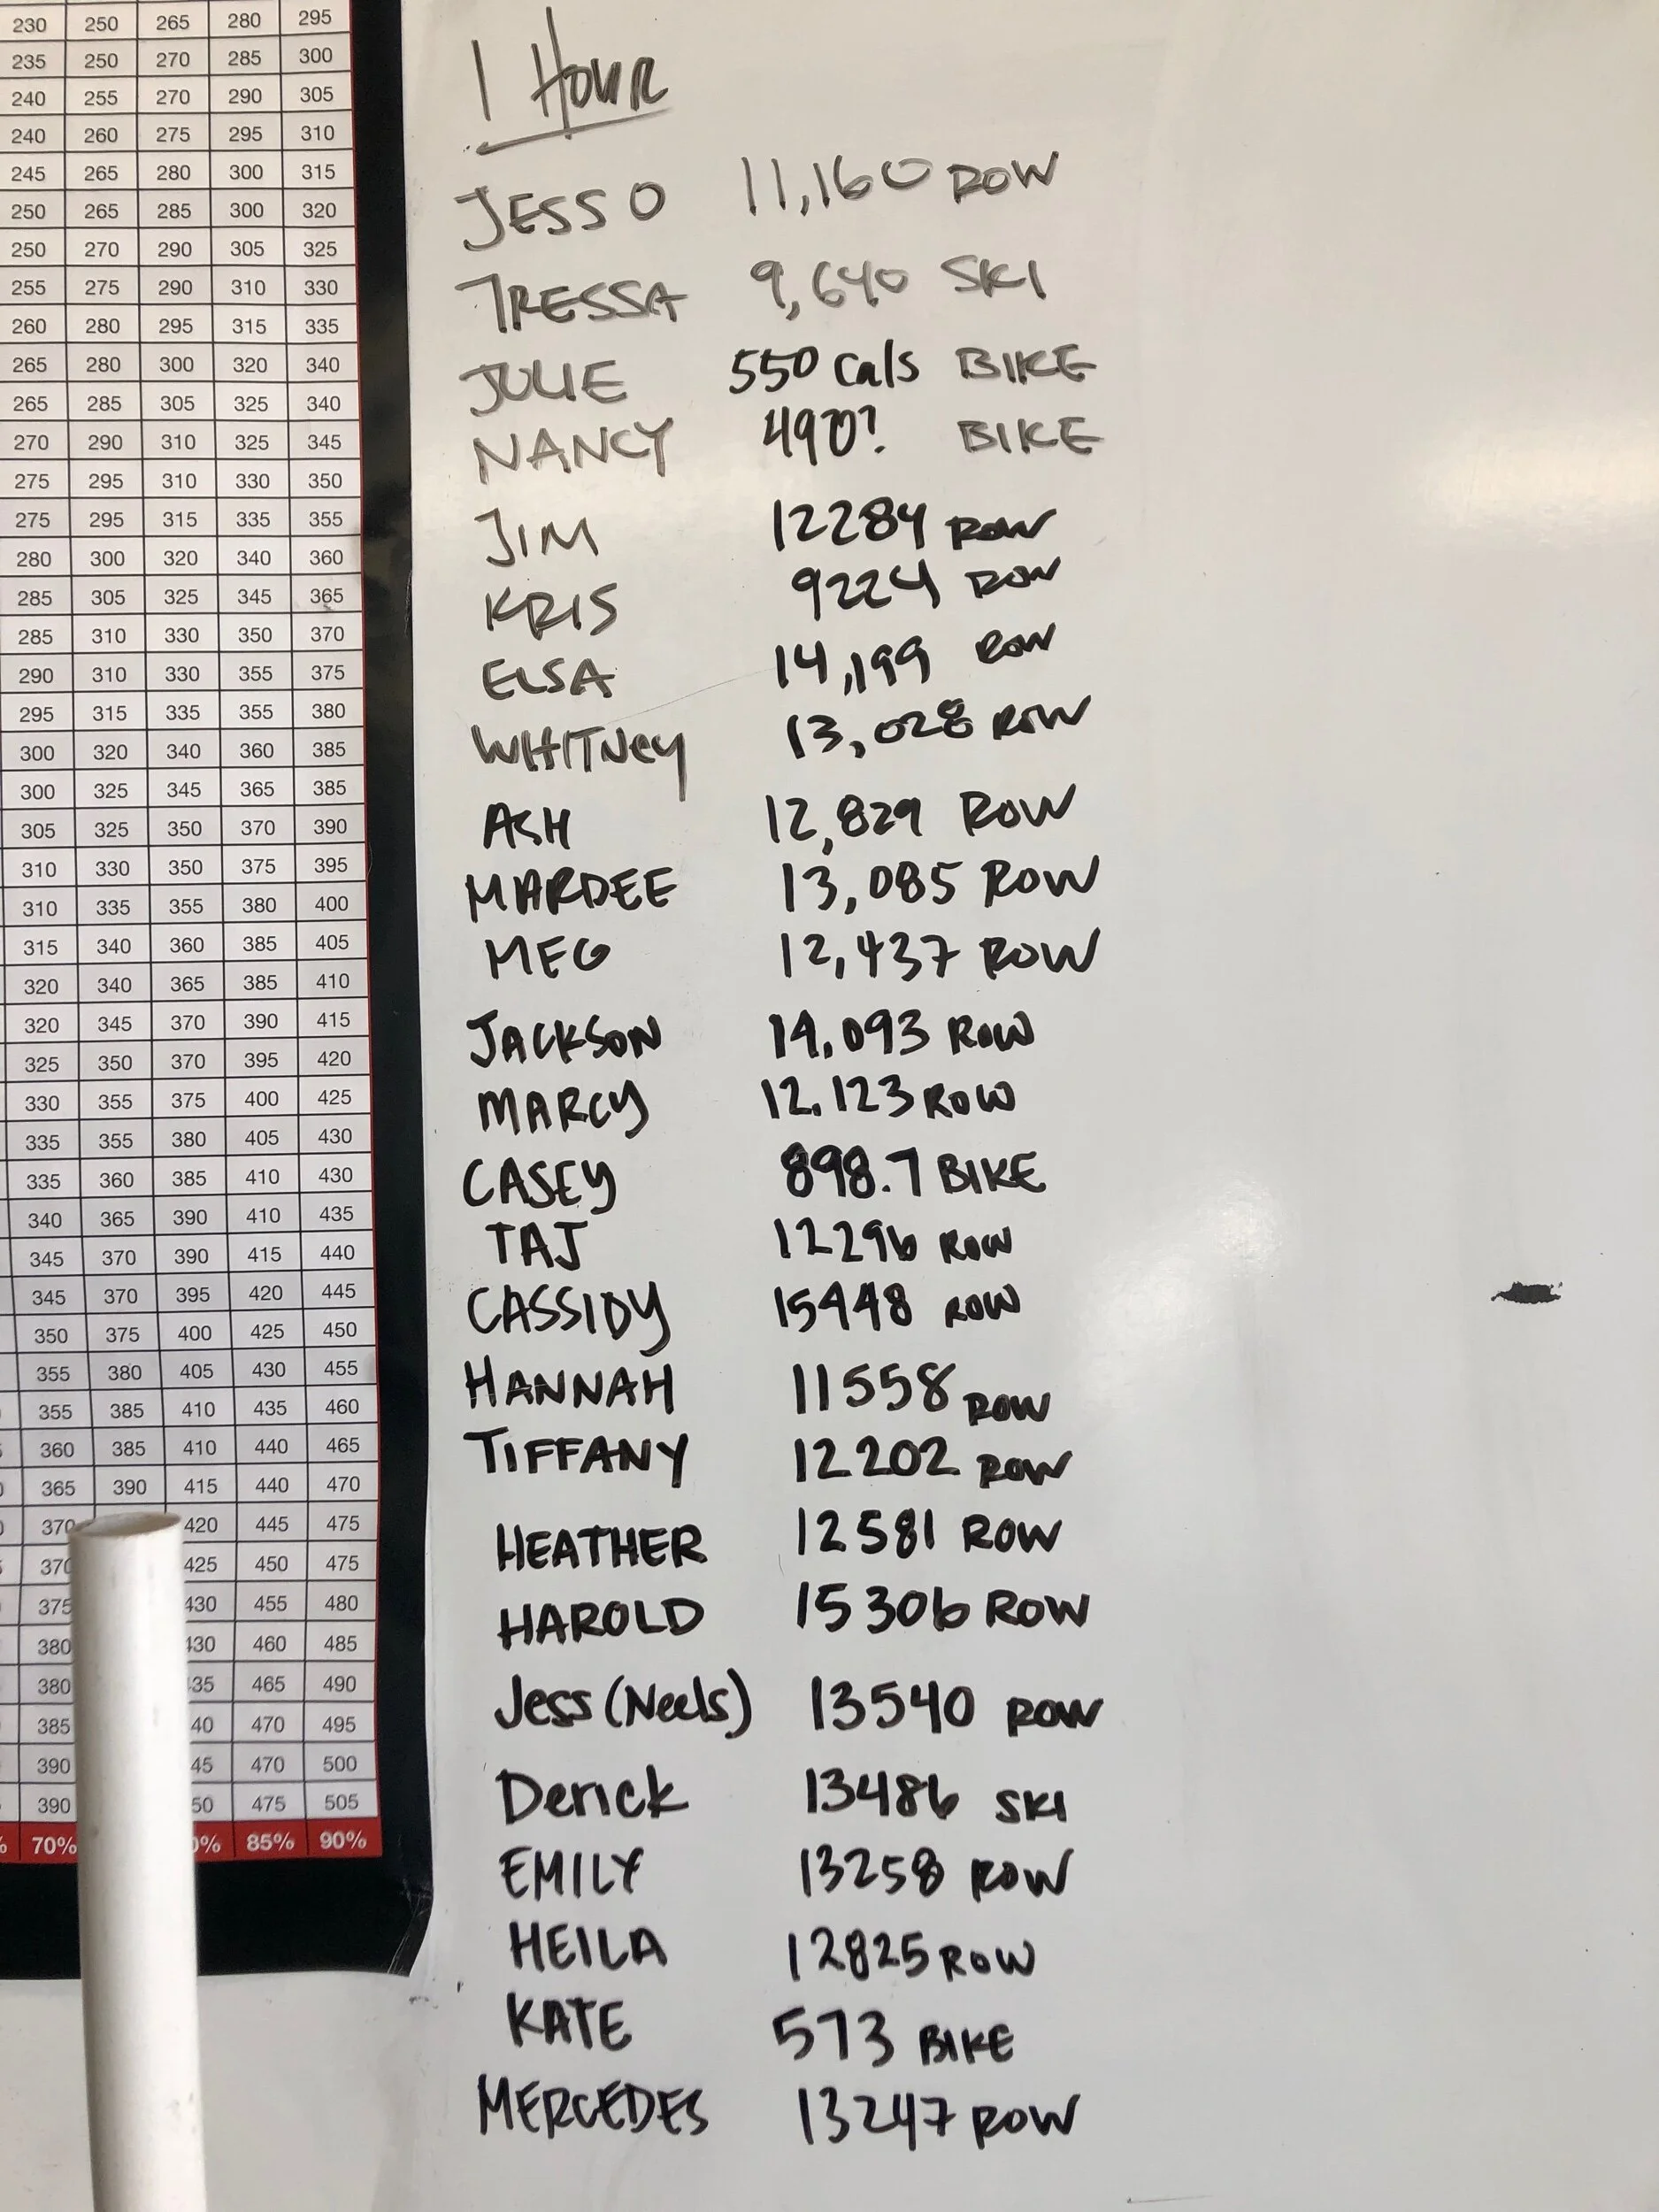 230 250 265 280 295
235 250 270 285 300
240 255 270 290 305
240 260 275 295 310
245 265 280 300 315
250 265 285 300 320
250 270 290 305 325
255 275 290 310 330
260 280 295 315 335
265 280 300 320 340
265 285 305 325 340
270 290 310 325 345
275 295 310 330 350
275 295 315 335 355
280 300 320 340 360
285 305 325 345 365
285 310 330 350 370
290 310 330 355 375
295 315 335 355 380
300 320 340 360 385
300 325 345 365 385
305 325 350 370 390
310 330 350 375 395
310 335 355 380 400
315 340 360 385 405
320 340 365 385 410
320 345 370 390 415
325 350 370 395 420
330 355 375 400 425
335 355 380 405 430
335 360 385 410 430
340 365 390 410 435
345 370 390 415 440
345 370 395 420 445
350 375 400 425 450
355 380 405 430 455
355 385 410 435 460
360 385 410 440 465
365 390 415 440 470
370 420 445 475
370 425 450 475
375 430 455 480
380 430 460 485
380 465 490
385 470 495
390 470 500
390 475 505
70% 85% 90%
1 HOUR
JESS O 11,160 ROW
TRESSA 9,640 SKI
JULIE 550 cals BIKE
NANCY 490? BIKE
JIM 12284 ROW
KRIS 9224 ROW
ELSA 14,199 ROW
WHITNey 13,028 ROW
ASH 12,829 ROW
MARDEE 13,085 ROW
MEG 12,437 ROW
JACKSON 14,093 ROW
MARCY 12,123 ROW
CASEY 898.7 BIKE
TAJ 12296 ROW
CASSIDY 15448 ROW
HANNAH 11558 ROW
TIFFANY 12202 ROW
HEATHER 12581 ROW
HAROLD 15306 ROW
Jess (Neels) 13540 ROW
Derick 13486 SKI
EMILY 13258 ROW
HEILA 12825 ROW
KATE 573 BIKE
MERCEDES 13247 ROW